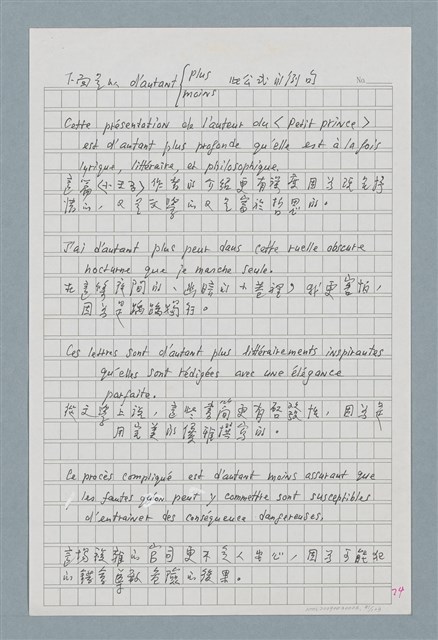 下面是以 d'autant { plus 此公式的例句
moins
No.
Cette présentation de l'auteur du <Petit prince>
est d'autant plus profonde qu'elle est à la fois
lyrique, littéraire, et philosophique.
這篇〈小王子〉作者的介紹更有深度因為既是抒
情的，又是文學的又是富於哲思的。
J'ai d'autant plus peur dans cette ruelle obscure
nocturne que je marche seule.
在這夜間的、幽暗的小巷裡，我更害怕，
因為是踽踽獨行。
Ces lettres sont d'autant plus littérairements inspirantes
qu'elles sont rédigées avec une élégance
parfaite.
從文學上說，這些書更有啓發性，因為是
用完美的優雅撰寫的。
Ce procès compliqué est d'autant moins assurant que
les fautes qu'on peut y commettre sont susceptibles
d'entraîner des conséquence dangereuses.
這場複雜的官司更不令人安心，因為可能犯
的錯會導致危險的後果。
74